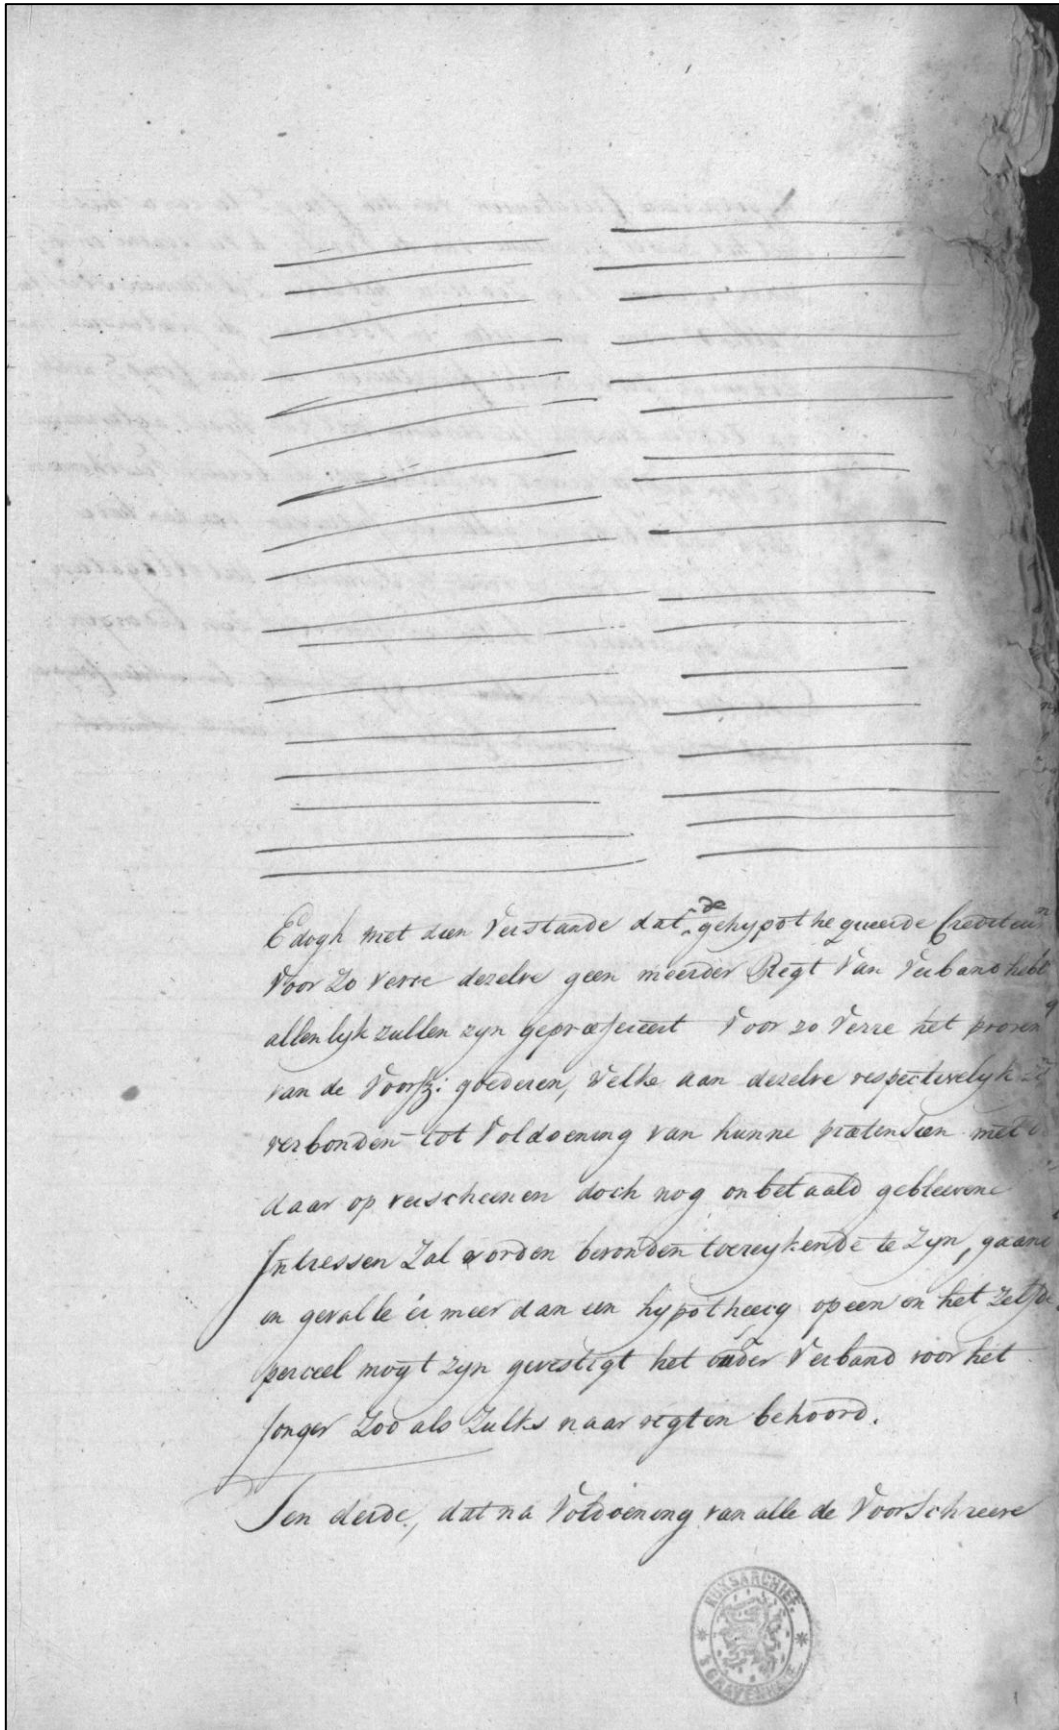 Edogh met dien Verstande dat de gehypothequeerde Crediteuren
Voor Zo Verre dezelve geen meerder Regt Van Verband hebb
allenlyk zullen zyn gepræfereert Voor zo Verre het proven
van de Voorsz: goederen, Welke aan dezelve respectivelyk
verbonden tot Voldoening van hunne prætensien met
daar op verscheenen doch nog onbetaald gebleevene
Intressen Zal worden bevonden toereykende te Zyn, gaande
in gevalle er meer dan een hypotheecq op een en het Zelfde
perceel mogt zyn gevestigt het ouder Verband voor het
Jonger Zoo als Zulks naar regten behoord.
Ten derde, dat na Voldoening van alle de Voorschreeve
RIJKSARCHIEF
'S GRAVENHAGE